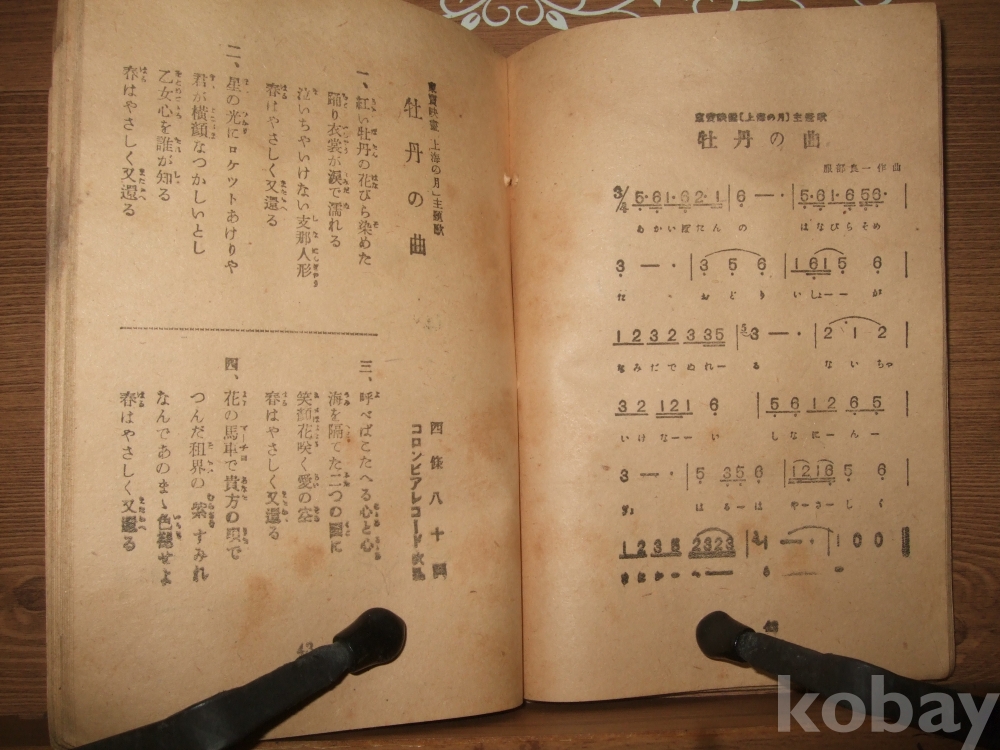 東寶映畫「上海の月」主題歌
牡丹の曲
四條八十詞
コロンビアレコード吹込
一、紅い牡丹の花びら染めた
踊り衣裳が涙で濡れる
泣いちやいけない支那人形
春はやさしく又還る
二、星の光にロケツトあけりや
君が横顔なつかしいとし
乙女心を誰が知る
春はやさしく又還る
三、呼べばこたへる心と心
海を隔てた二つの國に
笑顔花咲く愛の空
春はやさしく又還る
四、花の馬車で貴方の唄で
つんだ租界の紫すみれ
なんであのまゝ色褪せよ
春はやさしく又還る
43
東寶映畫【上海の月】主題歌
牡丹の曲
服部良一作曲
3/4 5·61·6 2·1 | 6 — · | 5·61·6 56 |
あかいぼたんの はなびらそめ
3 — · | 3 5 6 | 1 6 1 5 6 |
た、おどりいしょーーが
1 2 3 2 3 35 | 3 — · | 2 1 2 |
なみだでぬれーる ないちゃ
32 121 6 | 56 12 65 |
いけなーーい しなにんー
3 — · | 5 35 6 | 1216 5 6 |
ぎょ はるーは やーさーしく
12 35 2323 | 1 — · | 1 0 0
またかーへーる ー
kobay